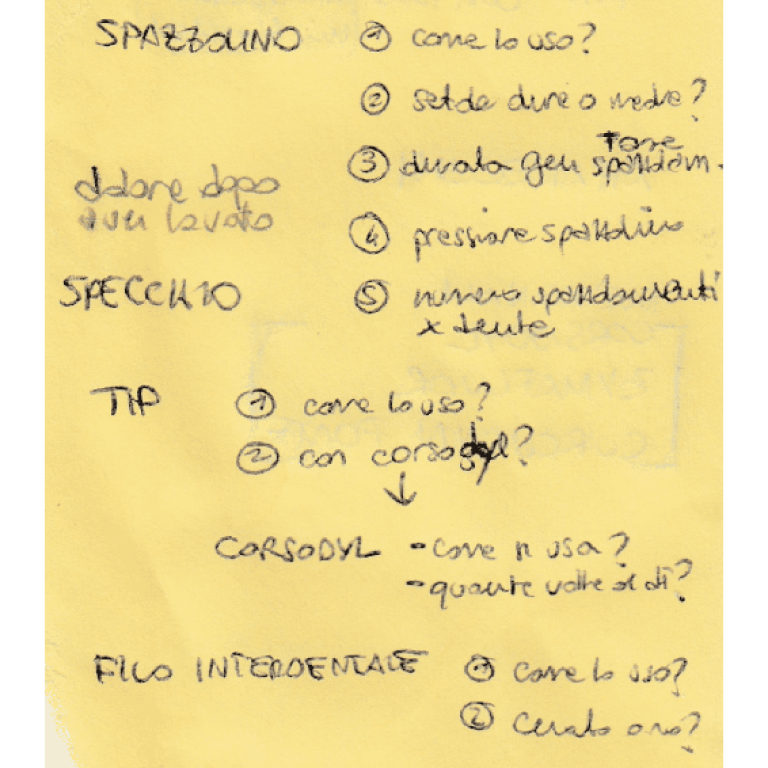 SPAZZOLINO ① come lo uso?
② setole dure o medie?
③ durata gen spazzolam.
Forse
dolore dopo
aver lavato
④ pressione spazzolino
SPECCHIO ⑤ numero spazzolamenti
x dente
TIP ① come lo uso?
② con corsodyl?
↓
CORSODYL - come si usa?
- quante volte al dì?
FILO INTERDENTALE ① come lo uso?
② cerato o no?